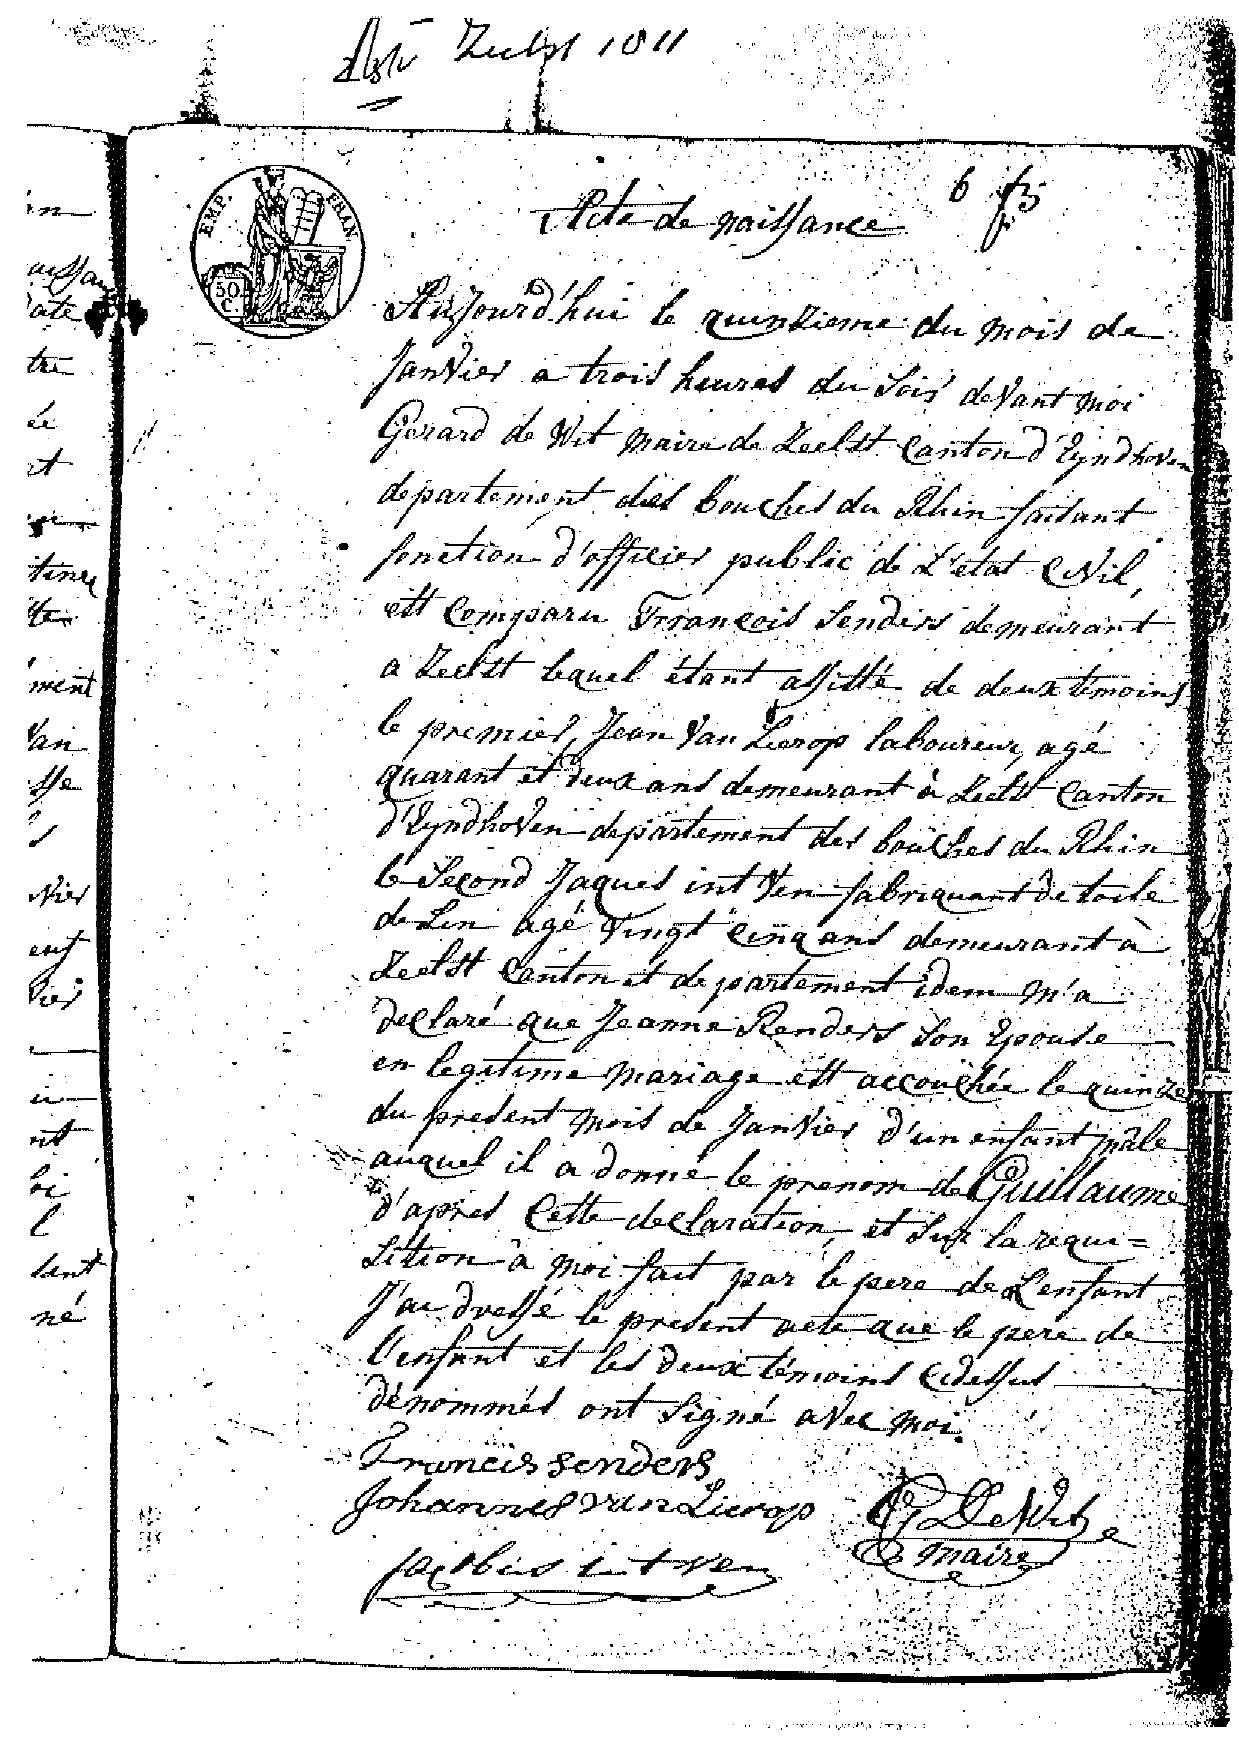 Zeelst 1811
6
Acte de naissance
EMP. FRAN
50
C.
Aujourd'hui le quinzieme du mois de
Janvier a trois heures du Soir devant moi
Gerard de Wit maire de Zeelst Canton d'Eyndhoven
departement des bouches du Rhin faisant
fonction d'officier public de L'etat Civil,
est Comparu Francois Senders demeurant
a Zeelst lequel étant assisté de deux témoins
le premier, Jean Van Lierop laboureur, agé
quarant et deux ans demeurant à Zeelst Canton
d'Eyndhoven departement des bouches du Rhin
le Second Jaques int Ven fabriquant de toile
de Lin agé Vingt Cinq ans demeurant à
Zeelst Canton et departement idem m'a
declaré que Jeanne Renders Son Epouse
en legitime mariage est accouchée le quinze
du present mois de Janvier d'un enfant mâle
auquel il a donné le prenom de Guillaume
d'apres Cette declaration, et Sur la requi=
Sition à moi fait par le pere de L'enfant
J'ai dressé le present acte que le pere de
l'enfant et les deux témoins Cidessus
dénommés ont Signé avec moi.
Francis Senders
Johannes van Lierop
G De Wit
maire
Jacobus int ven